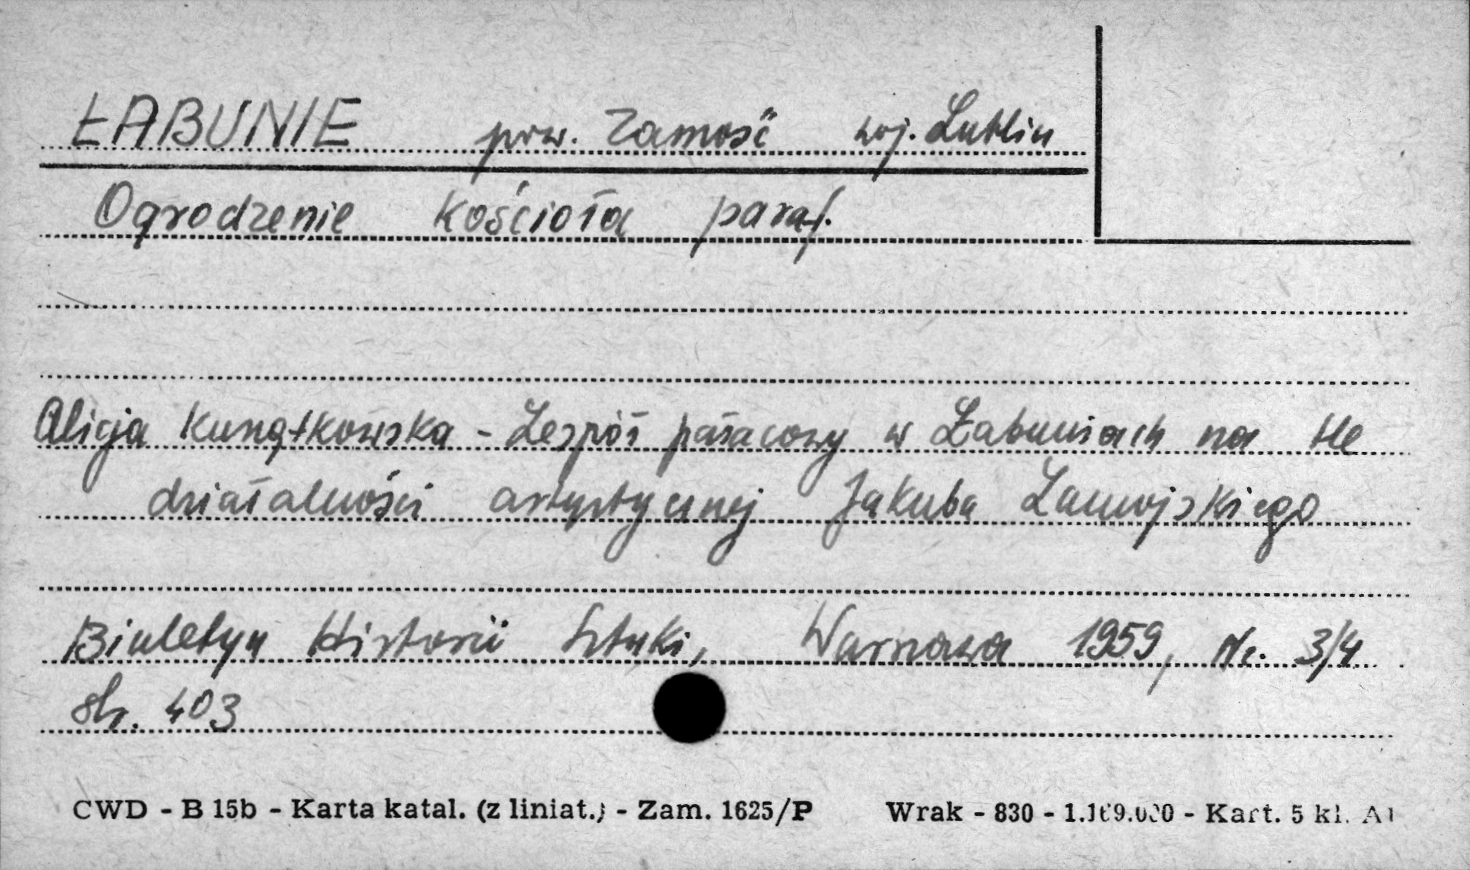 ŁABUNIE pow. Zamość woj. Lublin
Ogrodzenie kościoła paraf.
Alicja Kunątkowska - Zespół pałacowy w Łabuniach na tle
działalności artystycznej Jakuba Zamojskiego
Biuletyn Historii Sztuki, Warszawa 1959, Nr. 3/4
str. 403
CWD - B 15b - Karta katal. (z liniat.) - Zam. 1625/P Wrak - 830 - - Kart. 5 kl.